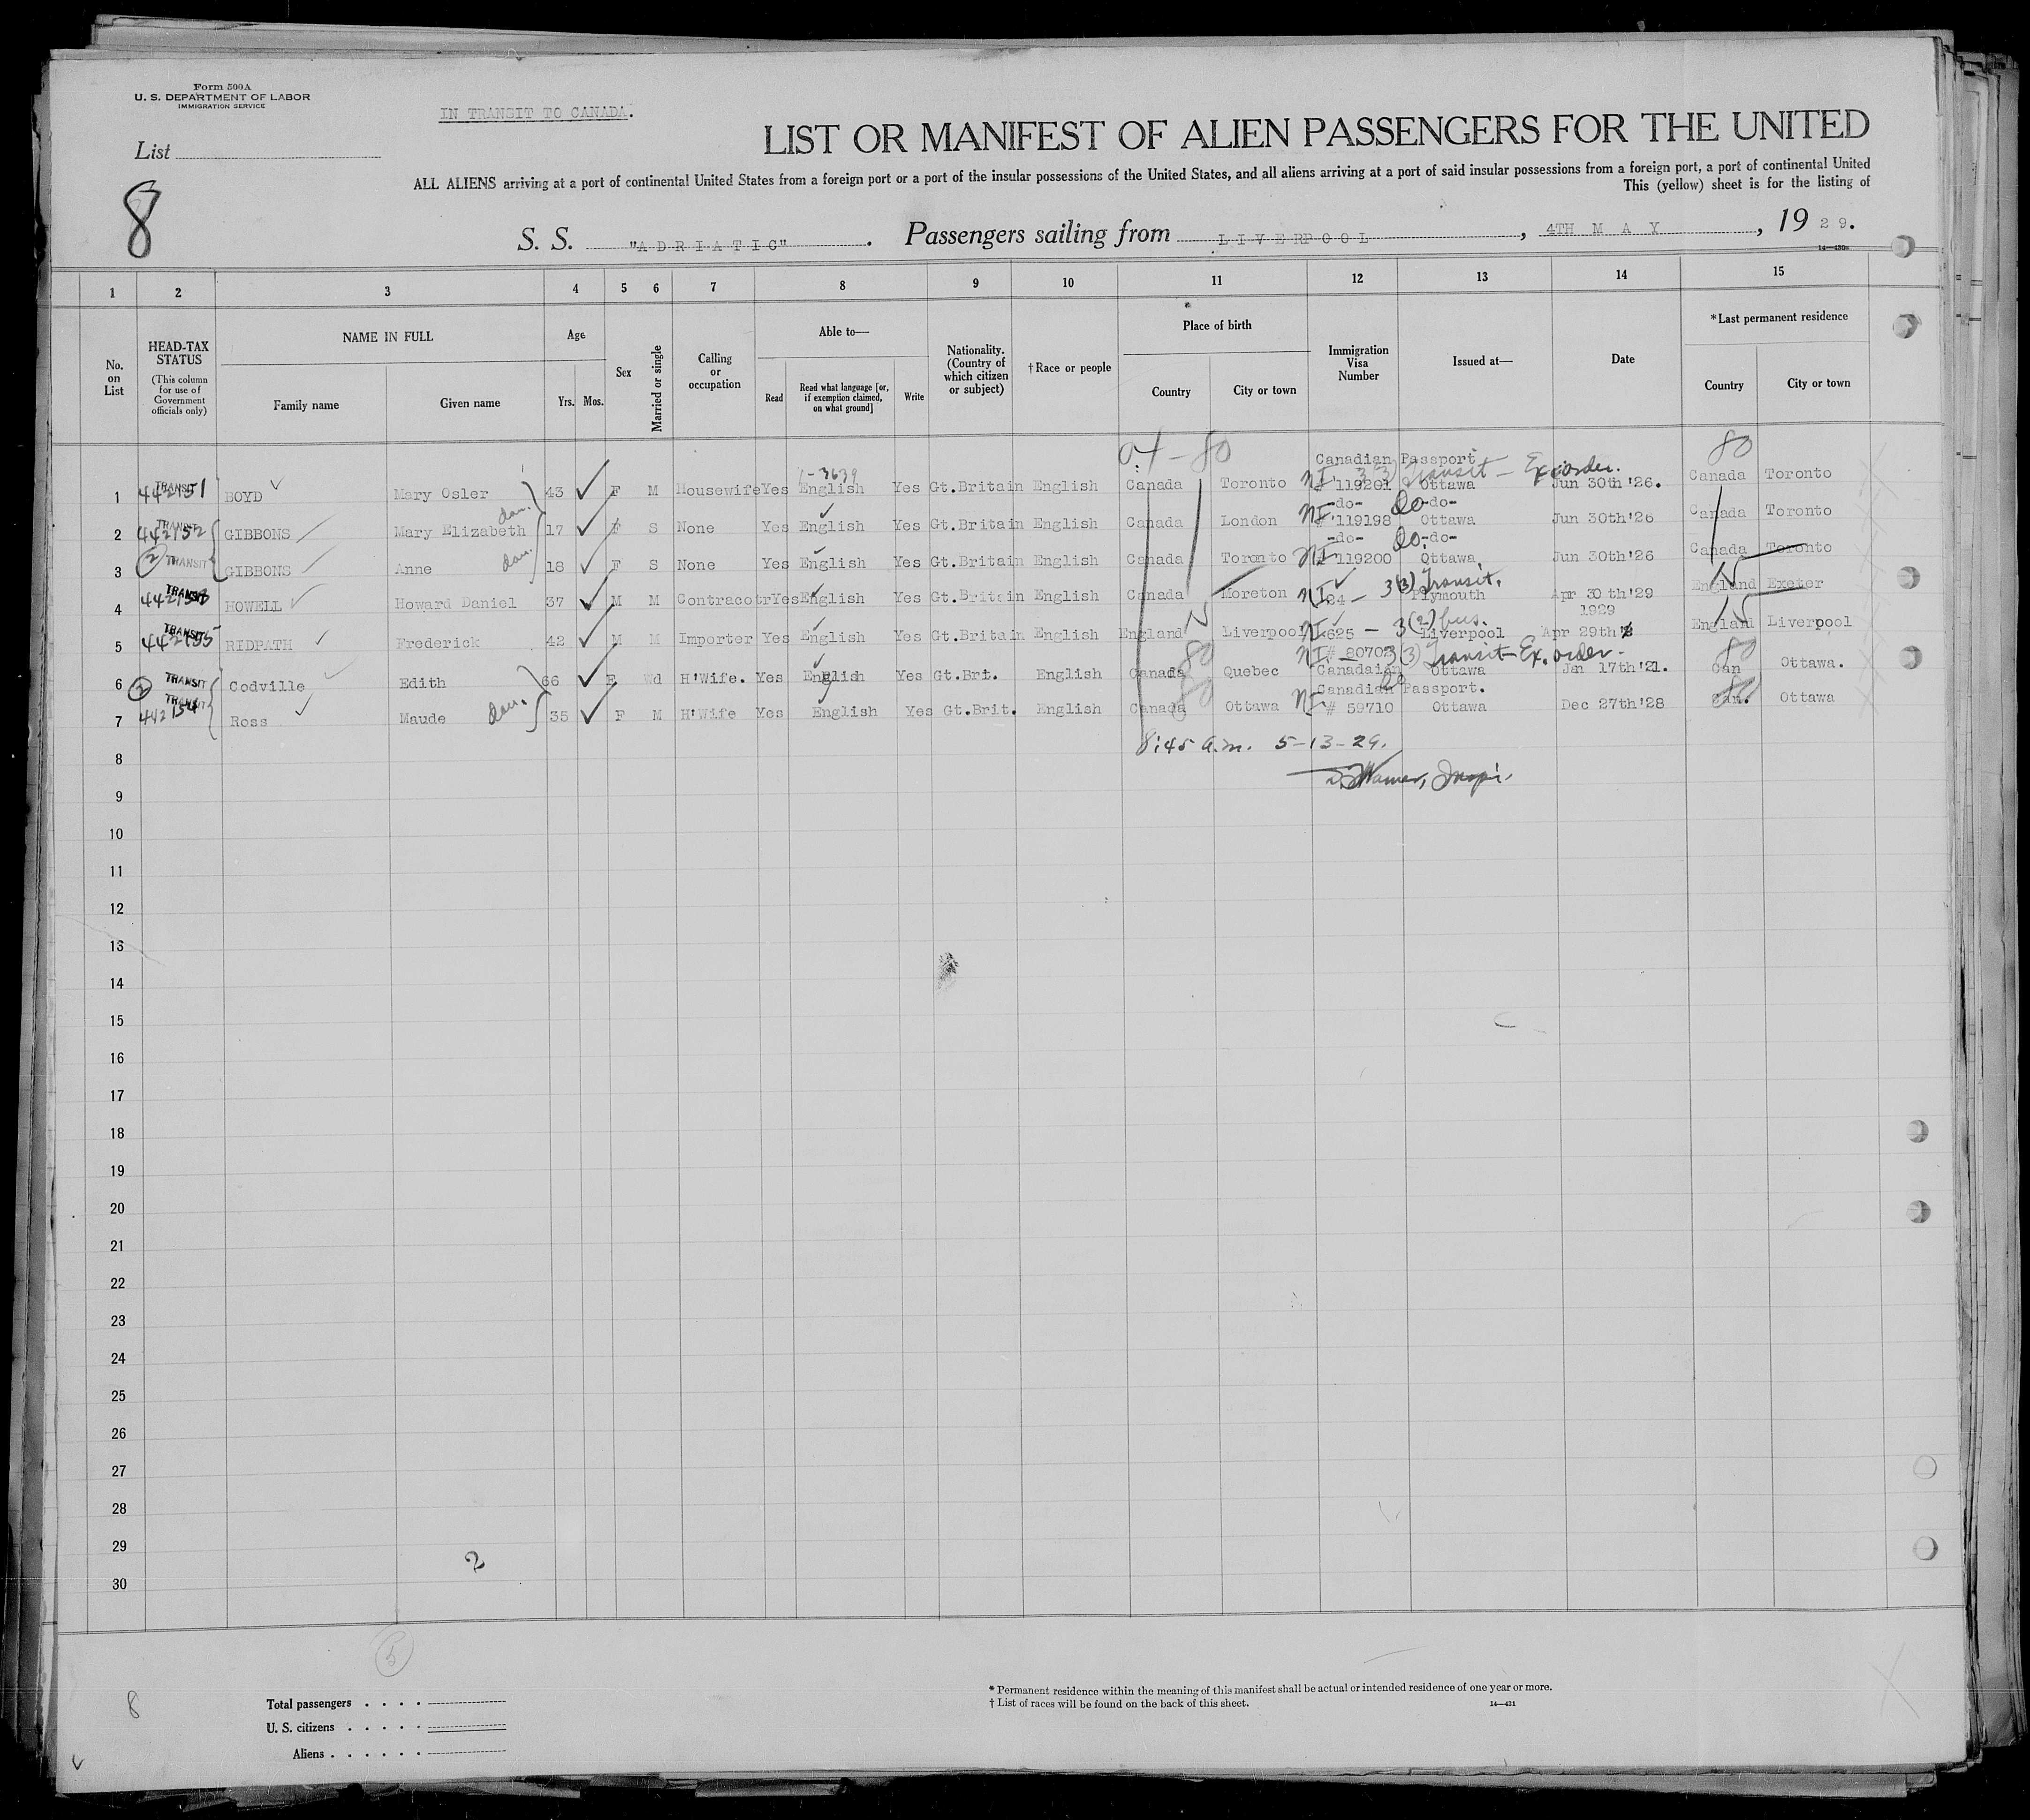 Form 500A
U. S. DEPARTMENT OF LABOR
IMMIGRATION SERVICE
IN TRANSIT TO CANADA.
List
8
LIST OR MANIFEST OF ALIEN PASSENGERS FOR THE UNITED
ALL ALIENS arriving at a port of continental United States from a foreign port or a port of the insular possessions of the United States, and all aliens arriving at a port of said insular possessions from a foreign port, a port of continental United
This (yellow) sheet is for the listing of
S. S. "ADRIATIC". Passengers sailing from LIVERPOOL, 4TH MAY, 1929.
1 2 3 4 5 6 7 8 9 10 11 12 13 14 15
No. on List
HEAD-TAX STATUS (This column for use of Government officials only)
NAME IN FULL
Family name Given name
Age
Yrs. Mos.
Sex
Married or single
Calling or occupation
Able to—
Read Read what language [or, if exemption claimed, on what ground] Write
Nationality. (Country of which citizen or subject)
†Race or people
Place of birth
Country City or town
Immigration Visa Number
Issued at—
Date
*Last permanent residence
Country City or town
04-80 80
Canadian Passport
3(3) Transit - Ex order.
1 442151 TRANSIT BOYD Mary Osler 43 F M Housewife Yes English Yes Gt.Britain English Canada Toronto NI 119201 Ottawa Jun 30th '26. Canada Toronto
-do- Do -do-
2 442152 TRANSIT GIBBONS Mary Elizabeth dau. 17 F S None Yes English Yes Gt.Britain English Canada London NI # 119198 Ottawa Jun 30th '26 Canada Toronto
-do- Do -do-
3 2 TRANSIT GIBBONS Anne dau. 18 F S None Yes English Yes Gt.Britain English Canada Toronto NI 119200 Ottawa, Jun 30th '26 Canada Toronto
4 TRANSIT HOWELL Howard Daniel 37 M M Contracotr Yes English Yes Gt.Britain English Canada Moreton NI 84 - 3(3) Transit. Plymouth Apr 30 th'29 England Exeter
1929
5 442155 TRANSIT RIDPATH Frederick 42 M M Importer Yes English Yes Gt.Britain English England Liverpool NI 625 - 3(2) bus. Liverpool Apr 29th England Liverpool
NI # 80703 3(3) Transit - Ex. order.
6 2 TRANSIT Codville Edith 66 F Wd H'Wife. Yes English Yes Gt.Brit. English Canada Quebec Canadaian Ottawa Jan 17th '21. Can Ottawa.
Canadian Passport.
7 442154 TRANSIT Ross Maude dau. 35 F M H'Wife Yes English Yes Gt.Brit. English Canada Ottawa NI # 59710 Ottawa Dec 27th '28 Can. Ottawa
8 8:45 a.m. 5-13-29.
9
10
11
12
13
14
15
16
17
18
19
20
21
22
23
24
25
26
27
28
29 2
30
8
Total passengers
U. S. citizens
Aliens
* Permanent residence within the meaning of this manifest shall be actual or intended residence of one year or more.
† List of races will be found on the back of this sheet.
14—431